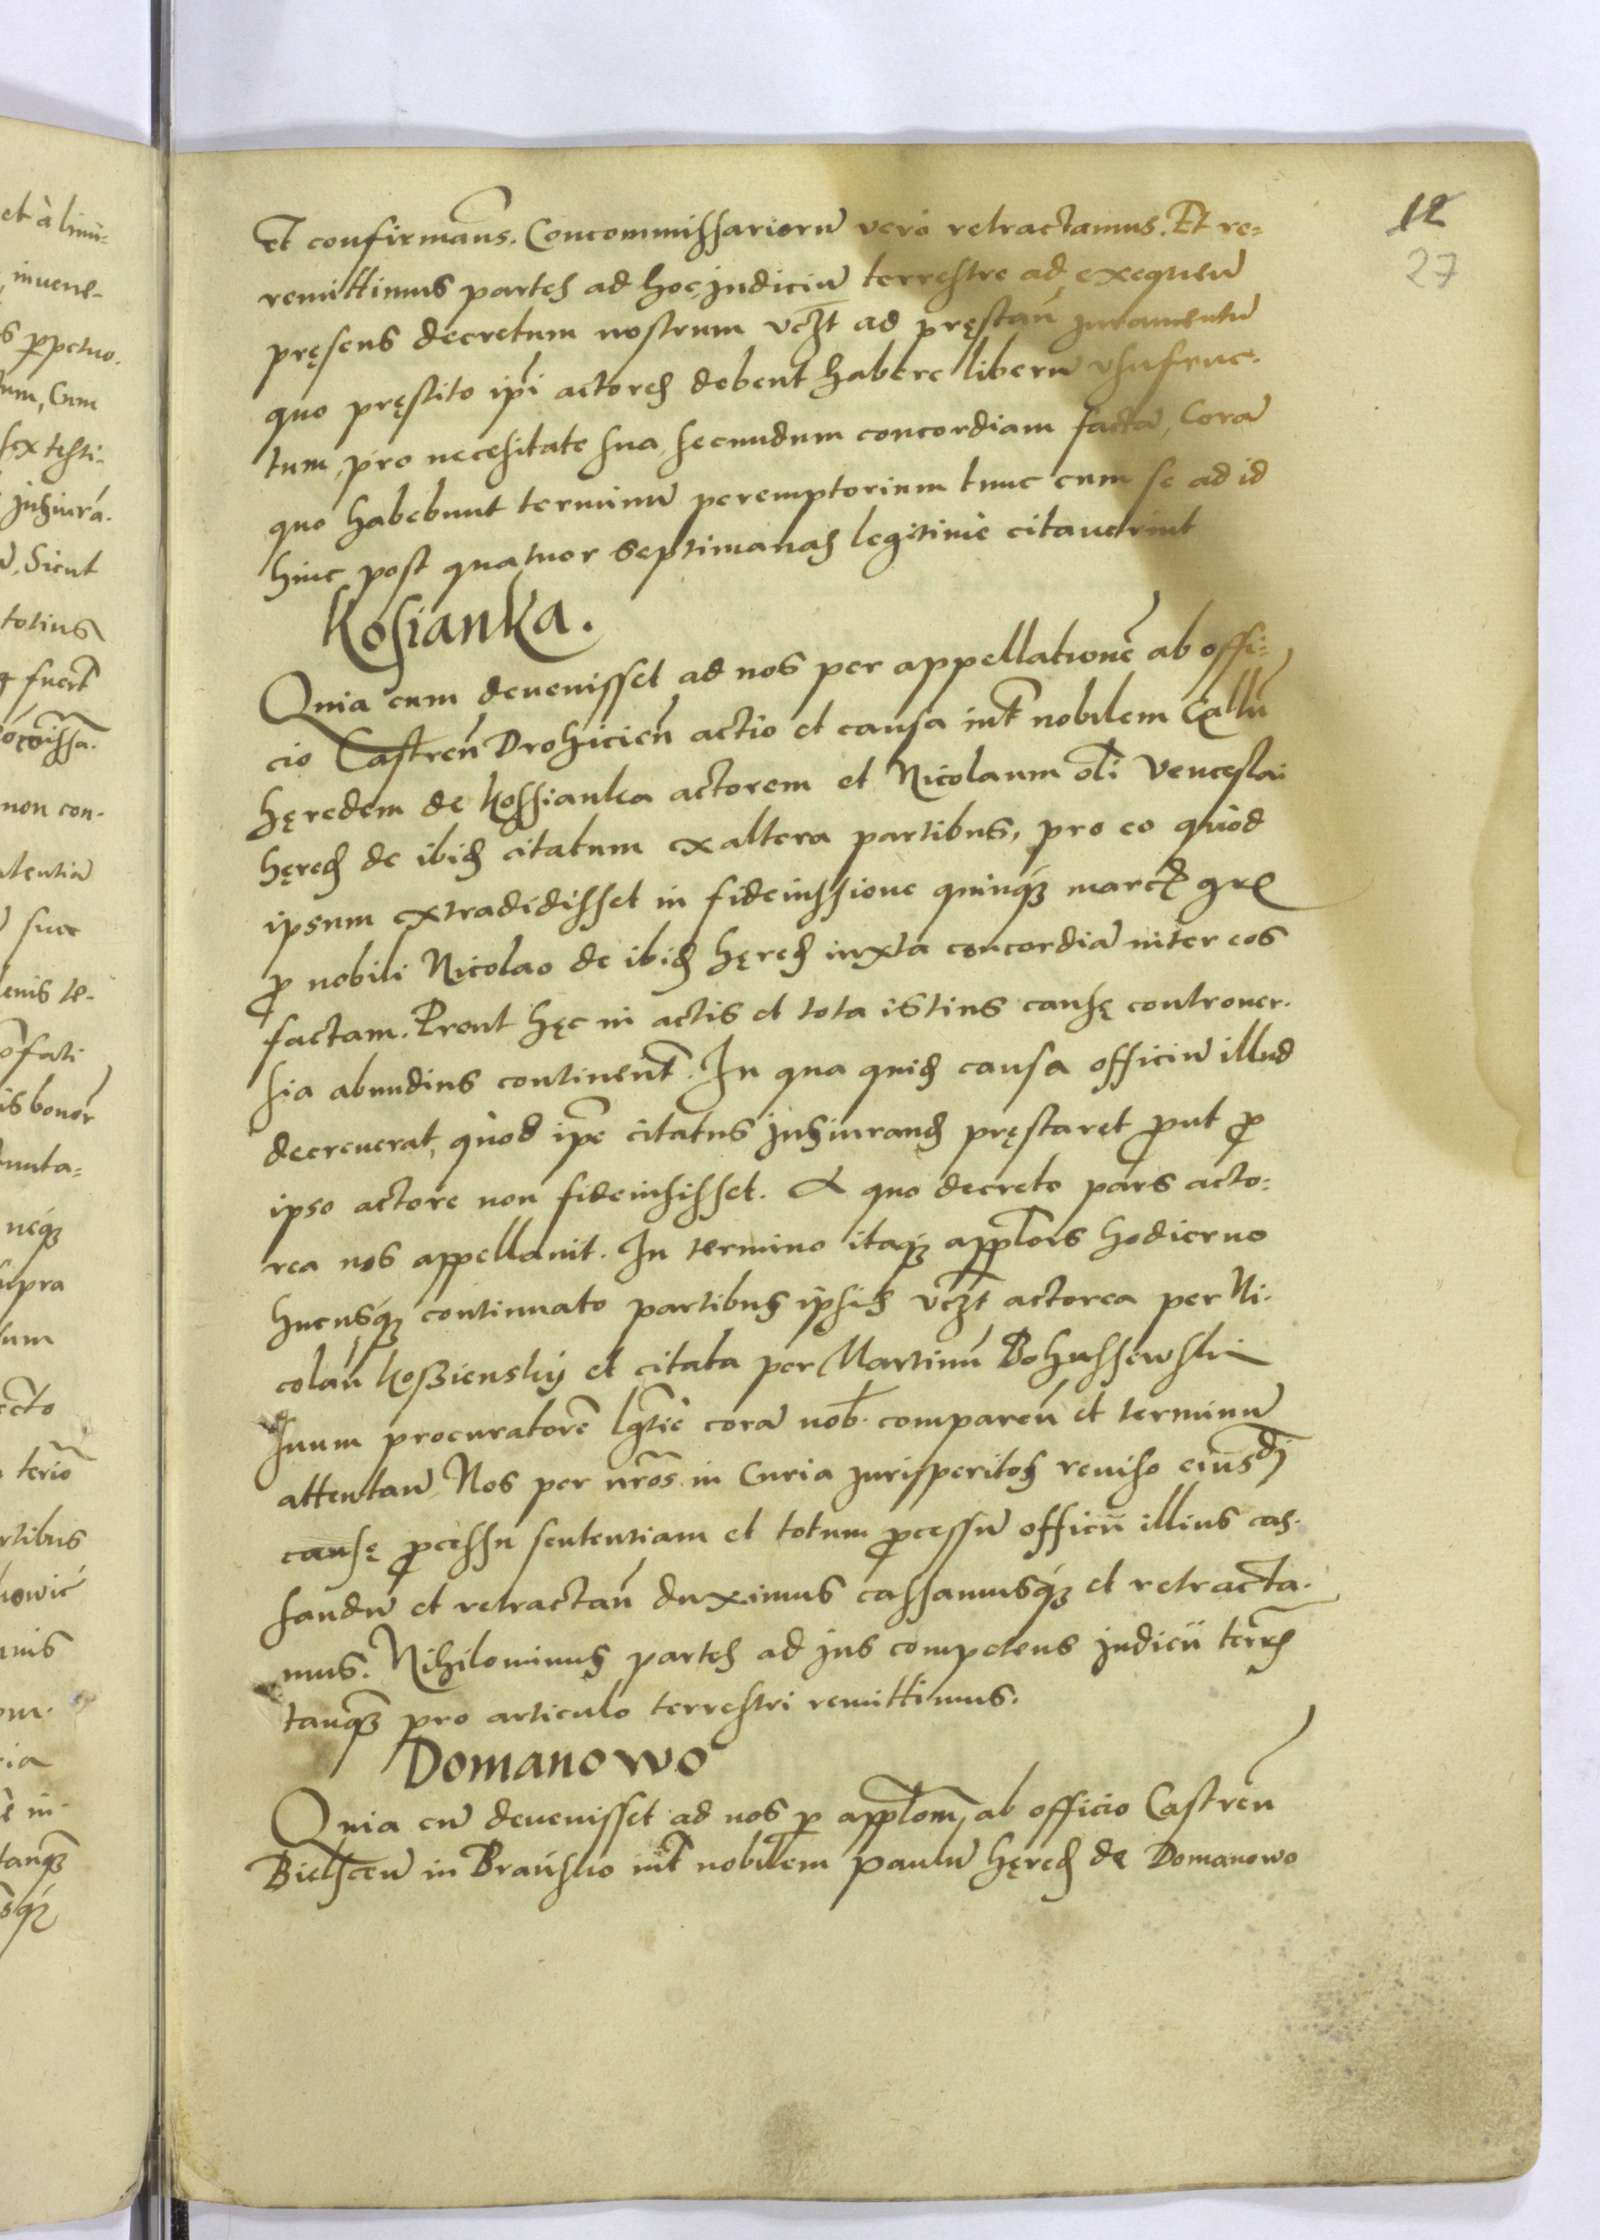 12
27
et confirmans. Concommissariorũ vero retractamus. Et re=
remittimus partes ad hoc Judiciũ terrestre ad exequeñ
pręsens decretum nostrum vczt ad pręstañ Juramentũ
quo pręstito ipi actores debent habere liberũ vsufruc-
tum, pro necesitate sua, secundum concordiam factã, Corã
quo habebunt terminũ peremptorium tunc cum se ad id
hinc post quatuor septimanas legitimè citauerint
Kosianka.
Quia cum deuenisset ad nos per appellationẽ ab offi=
cio Castreñ Drohicieñ actio et causa int nobilem Gallũ
hęredem de Kossianka actorem et Nicolaum oli Venceslai
hęred de ibid citatum ex altera partibus, pro eo quòd
ipsum extradidisset in fideiussione quinq; marcis grs
p nobili Nicolao de ibid hęred iuxta concordiã inter eos
factam. Prout hęc in actis et tota istius causę controuer-
sia abundius continent. In qua quid causa officiũ illud
decreuerat, quòd ipe citatus Jusiurand pręstaret put p
ipso actore non fideiussisset. A quo decreto pars acto=
rea nos appellauit. In termino itaq; applois hodierno
hucusq; continuato partibus ipsis vczt actorea per Ni-
colaũ Koßiensky et citata per Martinũ Bohussewski
suum procuratorẽ lgtiè corã nob. compareñ et terminũ
attentañ Nos per nros in Curia Jurisperitos reuiso eiusdi
causę pcessu sententiam et totum pcessũ officii illius cas-
sandũ et retractañ duximus cassamusq; et retracta-
mus. Nihilominus partes ad Jus competens Judicii terrs
tanq; pro articulo terrestri remittimus.
Domanowo
Quia cũ deuenisset ad nos p applom, ab officio Castreñ
Bielsceñ in Brańsko int nobilem paulũ hęred de Domanowo